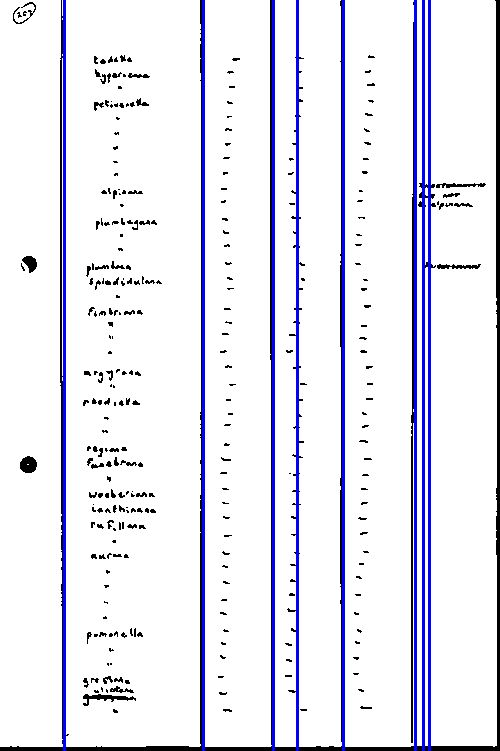 202
tedella
hyperiana
"
petiverella
"
"
"
"
"
alpinana
"
plumbagana
"
"
plumbana
Splendidulana
"
Fimbriana
"
"
"
argyrana
"
rhediella
"
"
regiana
Funebrana
"
Woeberiana
ianthinana
ruFillana
"
aurana
"
"
"
"
pomonella
"
"
ulicetana
"